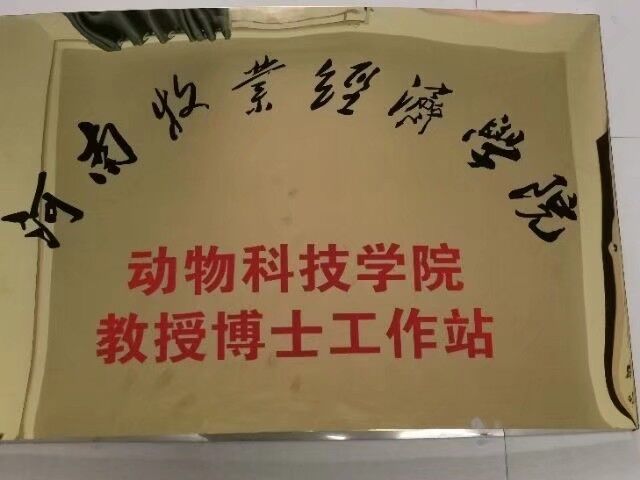 河南牧業經濟學院
动物科技学院
教授博士工作站